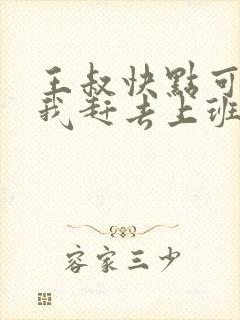 王叔快點可
我赶去上班
容家三少